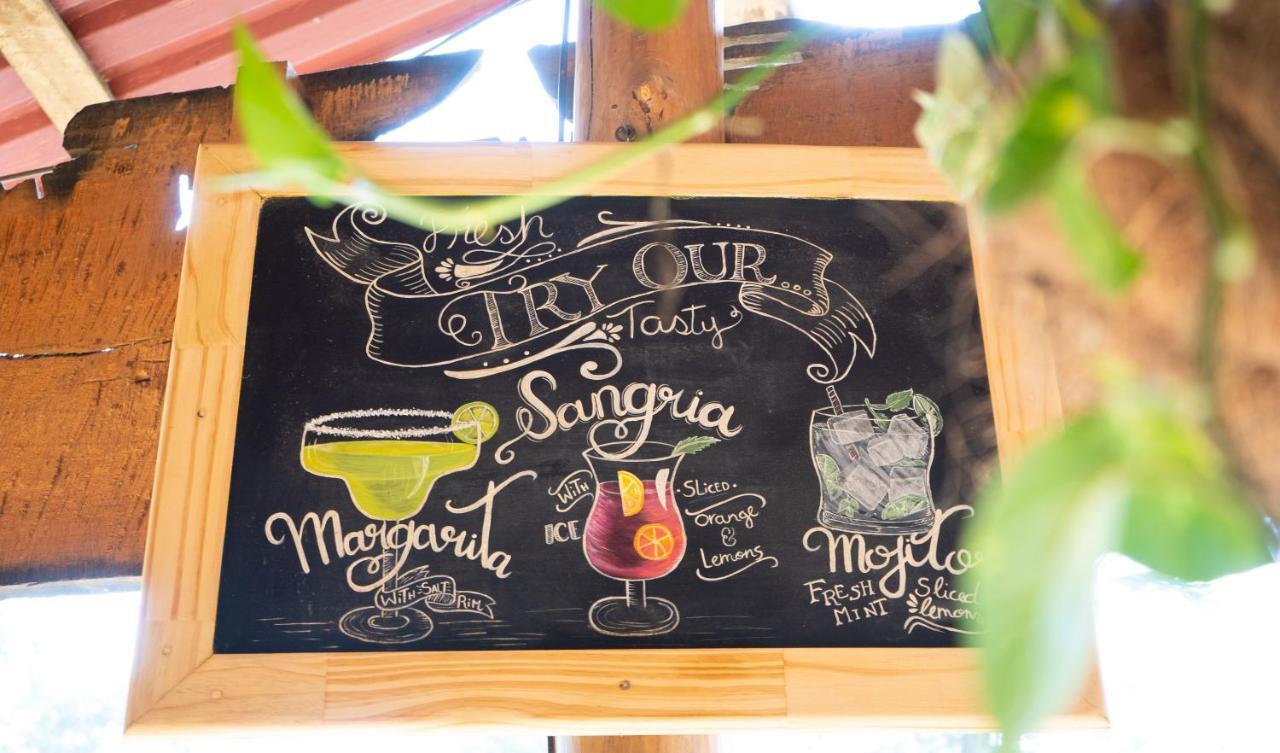 Fresh
TRY OUR...
Tasty
Sangria
WITH
ICE
SLICED
Orange
&
Lemons
Margarita
WITH SALT
RIM
Mojito
FRESH
MINT
Sliced
lemons